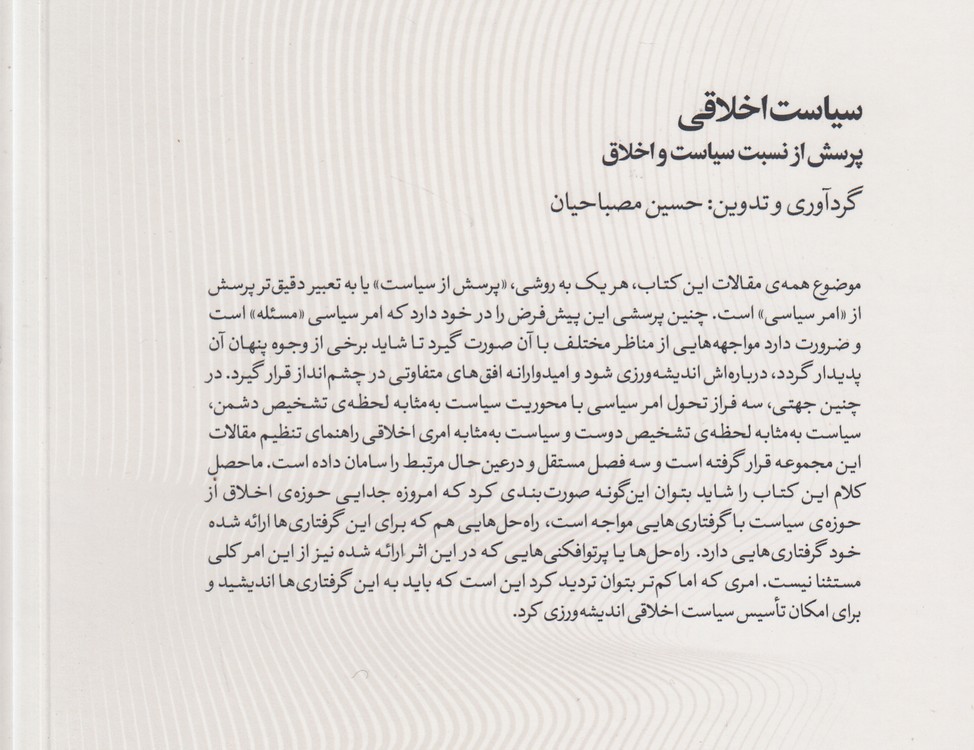 سیاست اخلاقی
پرسش از نسبت سیاست و اخلاق
گردآوری و تدوین: حسین مصباحیان
موضوع همه‌ی مقالات این کتاب، هر یک به روشی، «پرسش از سیاست» یا به تعبیر دقیق‌تر پرسش
از «امر سیاسی» است. چنین پرسشی این پیش‌فرض را در خود دارد که امر سیاسی «مسئله» است
و ضرورت دارد مواجهه‌هایی از مناظر مختلف با آن صورت گیرد تا شاید برخی از وجوه پنهان آن
پدیدار گردد، درباره‌اش اندیشه‌ورزی شود و امیدوارانه افق‌های متفاوتی در چشم‌انداز قرار گیرد. در
چنین جهتی، سه فراز تحول امر سیاسی با محوریت سیاست به‌مثابه لحظه‌ی تشخیص دشمن،
سیاست به‌مثابه لحظه‌ی تشخیص دوست و سیاست به‌مثابه امری اخلاقی راهنمای تنظیم مقالات
این مجموعه قرار گرفته است و سه فصل مستقل و درعین‌حال مرتبط را سامان داده است. ماحصل
کلام این کتاب را شاید بتوان این‌گونه صورت‌بندی کرد که امروزه جدایی حوزه‌ی اخلاق از
حوزه‌ی سیاست با گرفتاری‌هایی مواجه است، راه‌حل‌هایی هم که برای این گرفتاری‌ها ارائه شده
خود گرفتاری‌هایی دارد. راه‌حل‌ها یا پرتوافکنی‌هایی که در این اثر ارائه شده نیز از این امر کلی
مستثنا نیست. امری که اما کم‌تر بتوان تردید کرد این است که باید به این گرفتاری‌ها اندیشید و
برای امکان تأسیس سیاست اخلاقی اندیشه‌ورزی کرد.